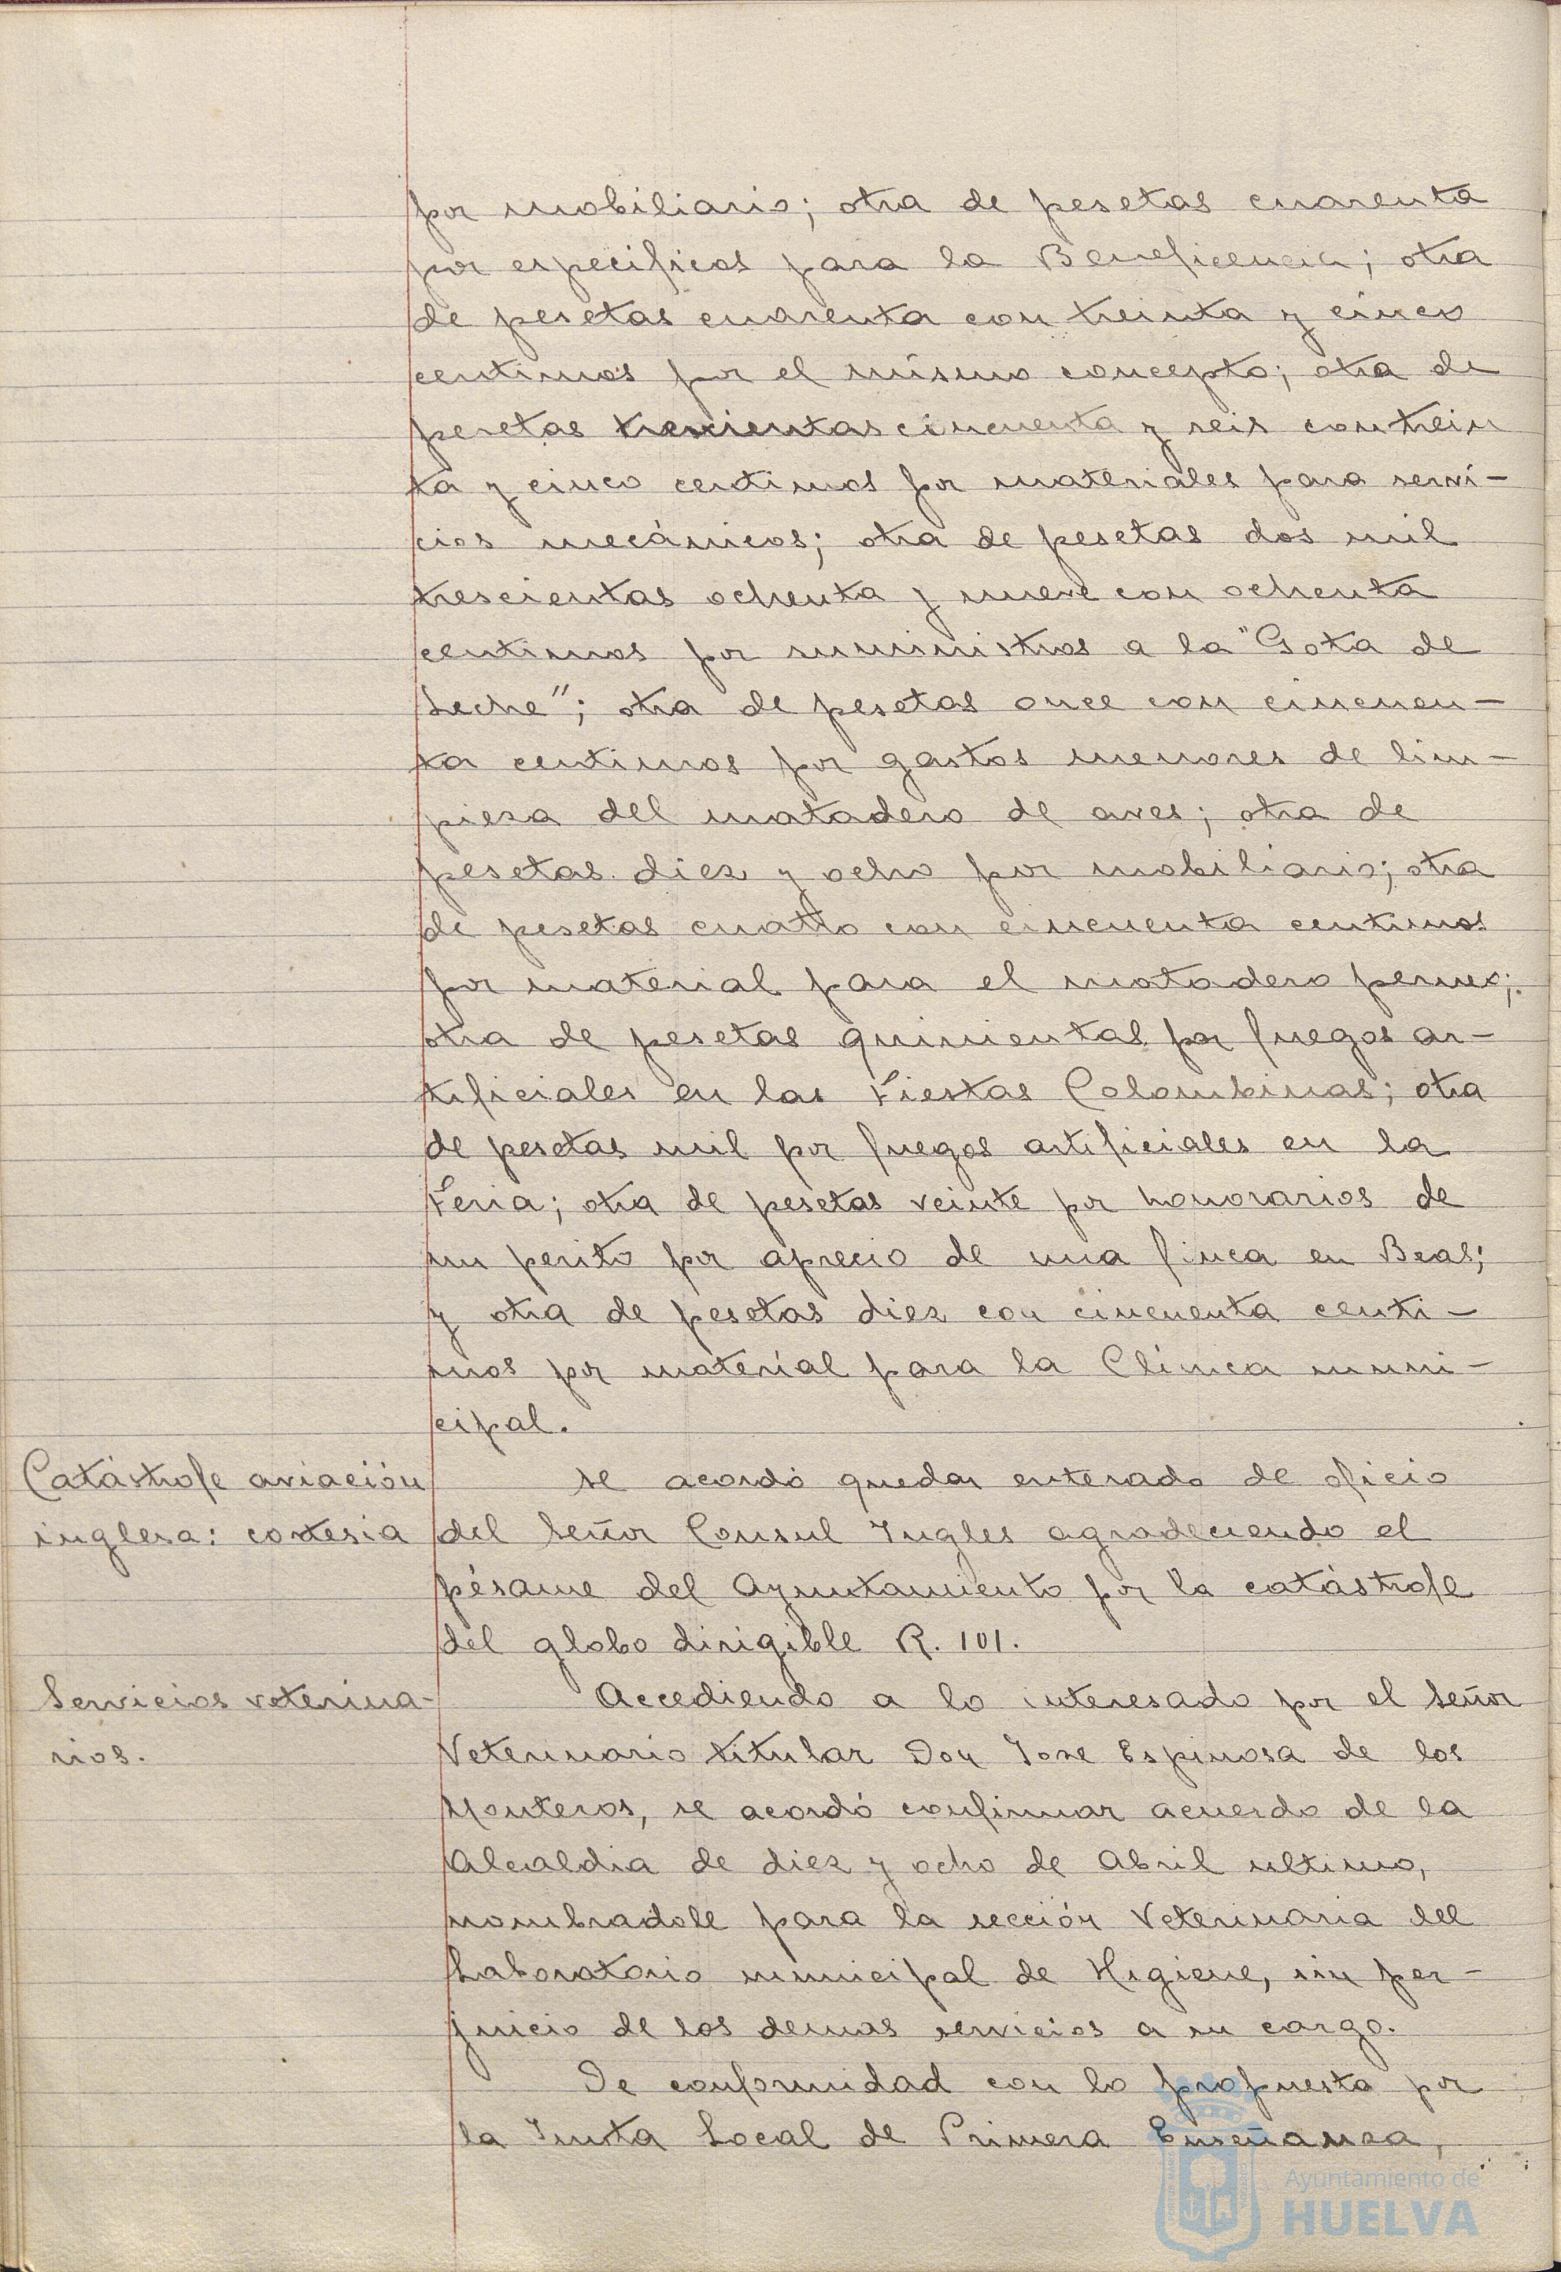 por mobiliario; otra de pesetas cuarenta
por especificos para la Beneficencia; otra
de pesetas cuarenta con treinta y cinco
centimos por el mismo concepto; otra de
pesetas trescientas cincuenta y seis con trein
ta y cinco centimos por materiales para servi-
cios mecánicos; otra de pesetas dos mil
trescientas ochenta y nueve con ochenta
centimos por suministros a la "Gota de
Leche"; otra de pesetas once con cincuen-
ta centimos por gastos menores de lim-
pieza del matadero de aves; otra de
pesetas diez y ocho por mobiliario; otra
de pesetas cuatro con cincuenta centimos
por material para el matadero perruno;
otra de pesetas quinientas por fuegos ar-
tificiales en las Fiestas Colombinas; otra
de pesetas mil por fuegos artificiales en la
Feria; otra de pesetas veinte por honorarios de
un perito por aprecio de una finca en Beas;
y otra de pesetas diez con cincuenta centi-
mos por material para la Clínica muni-
cipal.
Catástrofe aviación
inglesa: cortesia
Se acordó quedar enterado de oficio
del Señor Consul Ingles agradeciendo el
pésame del Ayuntamiento por la catástrofe
del globo dirigible R. 101.
Servicios veterina-
rios.
Accediendo a lo interesado por el Señor
Veterinario titular Don Jose Espinosa de los
Monteros, se acordó confirmar acuerdo de la
Alcaldia de diez y ocho de Abril ultimo,
nombradole para la sección Veterinaria del
Laboratorio municipal de Higiene, sin per-
juicio de los demas servicios a su cargo.
De conformidad con lo propuesto por
la Junta Local de Primera Enseñanza,
Ayuntamiento de
HUELVA